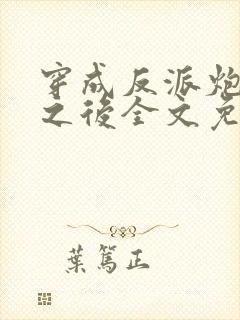 穿成反派炮
之後全文免
葉篤正